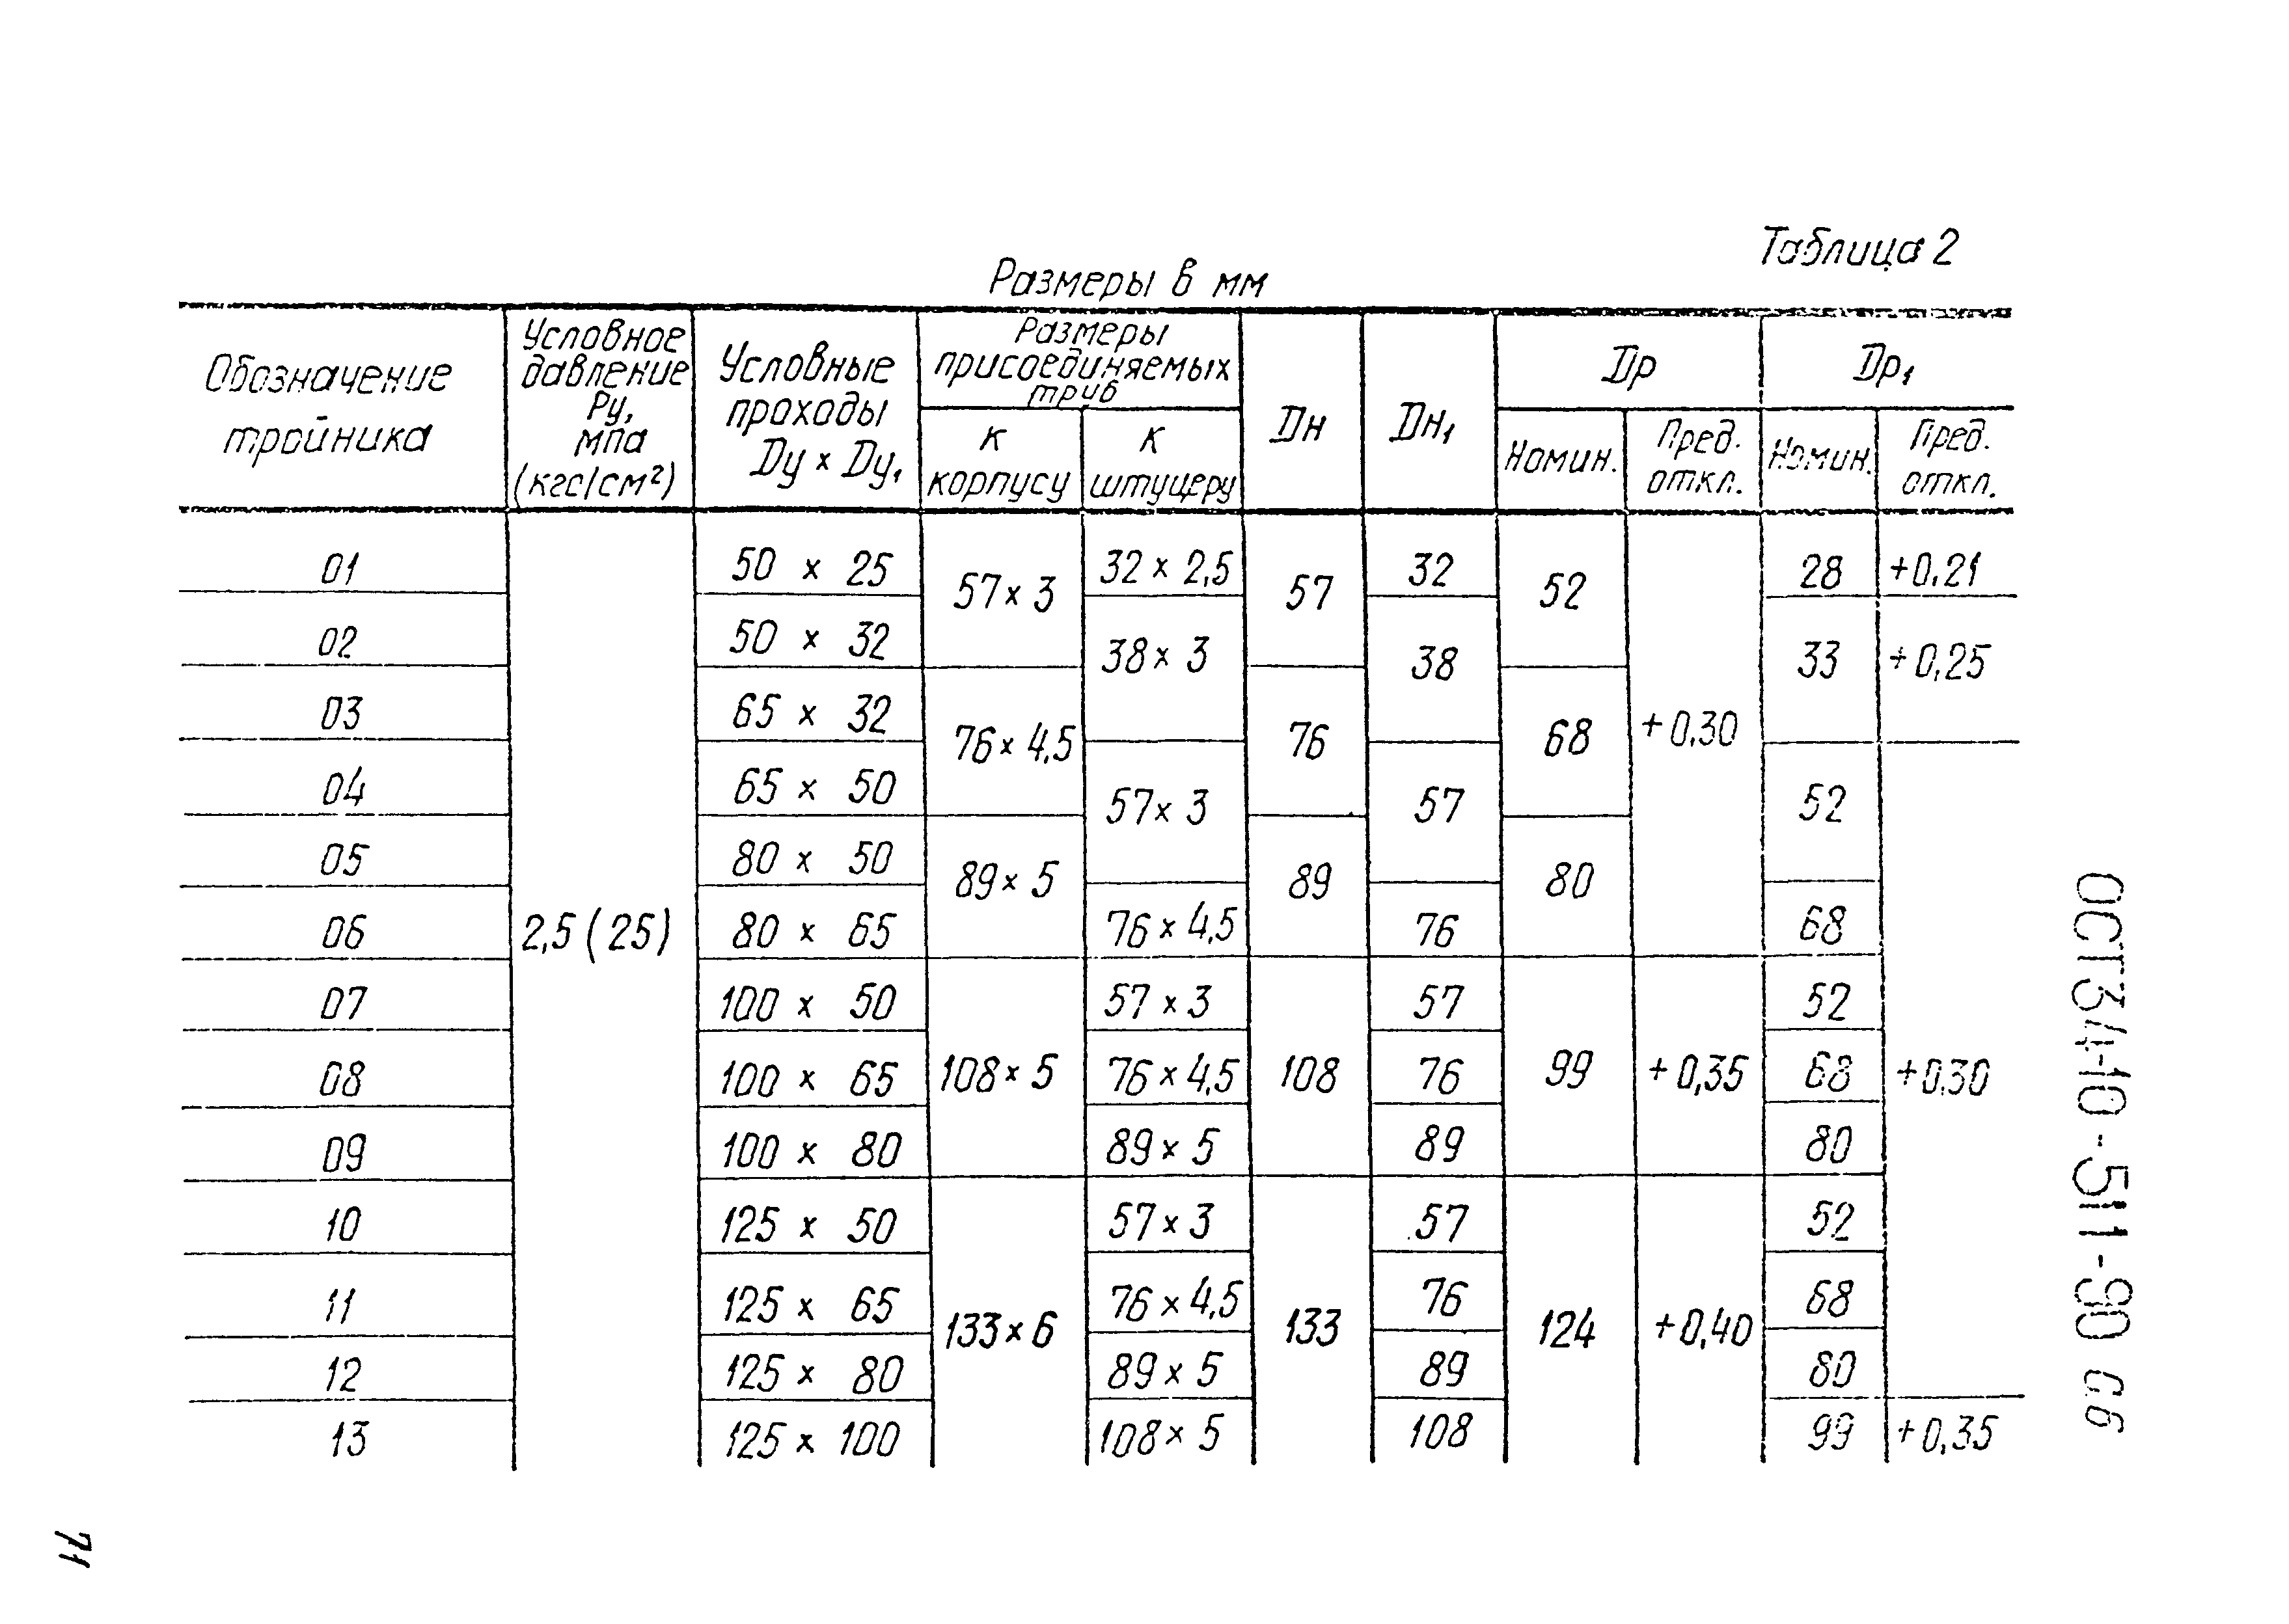 Таблица 2
Размеры в мм
Обозначение тройника | Условное давление Ру, мпа (кгс/см²) | Условные проходы Dу × Dу₁ | Размеры присоединяемых труб | Dн | Dн₁ | Dр | Dр₁
к корпусу | к штуцеру | Номин. | Пред. откл. | Номин. | Пред. откл.
01 50 × 25 57 × 3 32 × 2,5 57 32 52 28 +0,21
02 50 × 32 38 × 3 38 33 +0,25
03 65 × 32 76 × 4,5 76 68 +0,30
04 65 × 50 57 × 3 57 52
05 80 × 50 89 × 5 89 80
06 2,5 (25) 80 × 65 76 × 4,5 76 68
07 100 × 50 57 × 3 57 52
08 100 × 65 108 × 5 76 × 4,5 108 76 99 +0,35 68 +0,30
09 100 × 80 89 × 5 89 80
10 125 × 50 57 × 3 57 52
11 125 × 65 133 × 6 76 × 4,5 133 76 124 +0,40 68
12 125 × 80 89 × 5 89 80
13 125 × 100 108 × 5 108 99 +0,35
ОСТ34-10-511-90 с.6
71